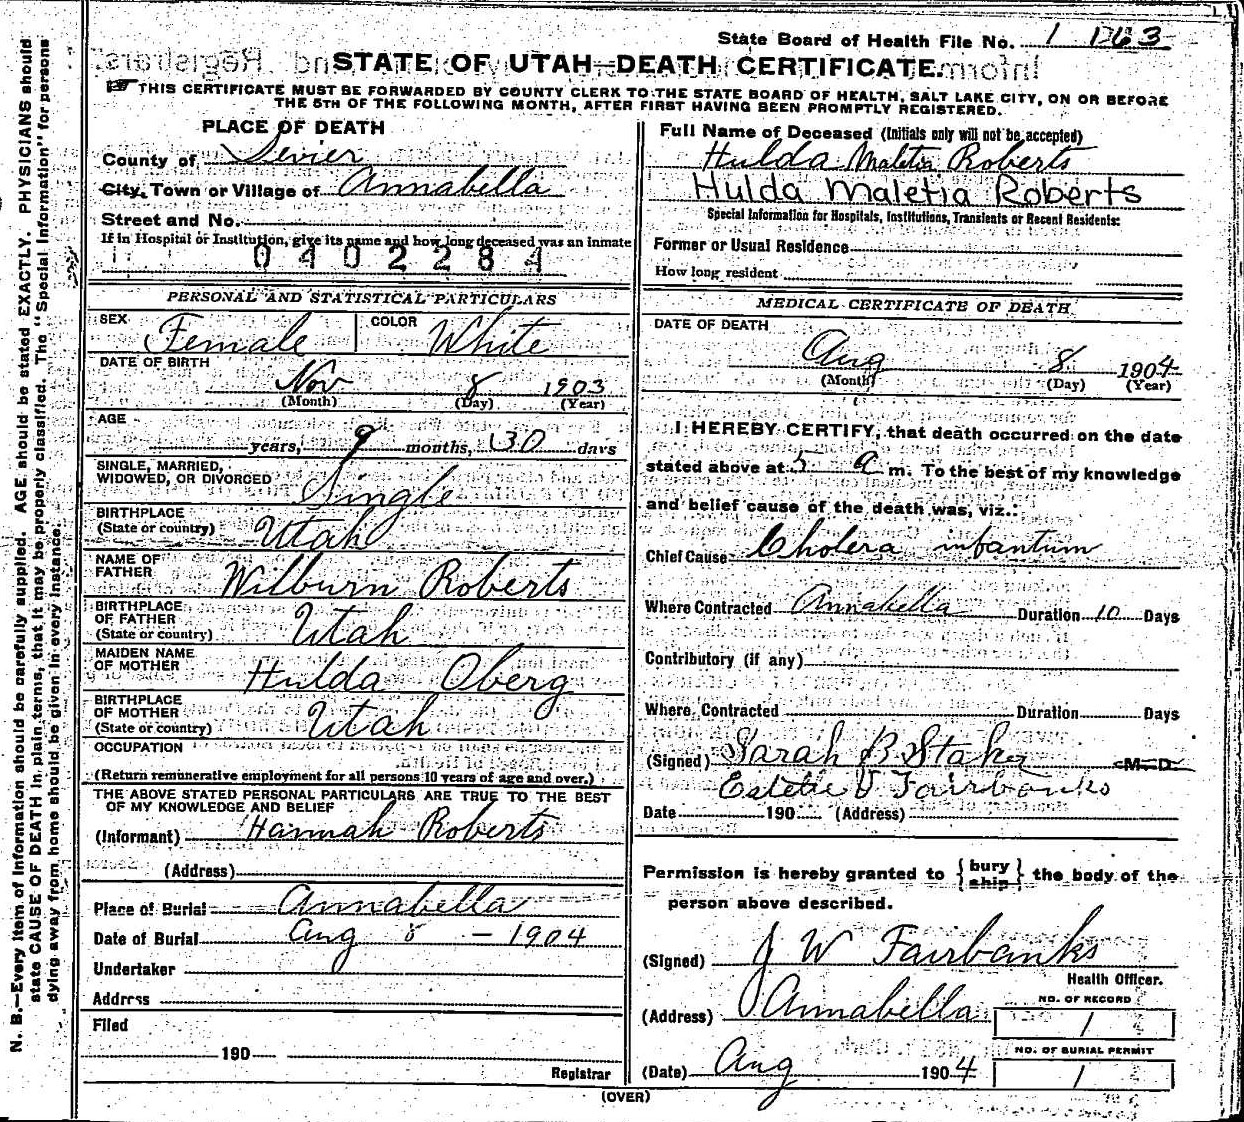 State Board of Health File No. 1 1063
STATE OF UTAH—DEATH CERTIFICATE.
THIS CERTIFICATE MUST BE FORWARDED BY COUNTY CLERK TO THE STATE BOARD OF HEALTH, SALT LAKE CITY, ON OR BEFORE
THE 5TH OF THE FOLLOWING MONTH, AFTER FIRST HAVING BEEN PROMPTLY REGISTERED.
PLACE OF DEATH
County of Sevier
City, Town or Village of Annabella
Street and No.
If in Hospital or Institution, give its name and how long deceased was an inmate
0402284
Full Name of Deceased (Initials only will not be accepted)
Hulda Maletia Roberts
Hulda Maletia Roberts
Special Information for Hospitals, Institutions, Transients or Recent Residents:
Former or Usual Residence
How long resident
PERSONAL AND STATISTICAL PARTICULARS
SEX Female COLOR White
DATE OF BIRTH
Nov 8 1903
(Month) (Day) (Year)
AGE
years, 9 months, 30 days
SINGLE, MARRIED,
WIDOWED, OR DIVORCED Single
BIRTHPLACE
(State or country) Utah
NAME OF
FATHER Wilburn Roberts
BIRTHPLACE
OF FATHER
(State or country) Utah
MAIDEN NAME
OF MOTHER Hulda Oberg
BIRTHPLACE
OF MOTHER
(State or country) Utah
OCCUPATION
(Return remunerative employment for all persons 10 years of age and over.)
THE ABOVE STATED PERSONAL PARTICULARS ARE TRUE TO THE BEST
OF MY KNOWLEDGE AND BELIEF
(Informant) Hannah Roberts
(Address)
Place of Burial Annabella
Date of Burial Aug 8 - 1904
Undertaker
Address
Filed
190
Registrar
MEDICAL CERTIFICATE OF DEATH
DATE OF DEATH
Aug 8 1904
(Month) (Day) (Year)
I HEREBY CERTIFY, that death occurred on the date
stated above at 5 a m. To the best of my knowledge
and belief cause of the death was, viz.:
Chief Cause Cholera infantum
Where Contracted Annabella Duration 10 Days
Contributory (if any)
Where Contracted Duration Days
(Signed) Sarah B Staker M. D.
Estelle V Fairbanks
Date 190 (Address)
Permission is hereby granted to {bury
ship} the body of the
person above described.
(Signed) J W Fairbanks
Health Officer.
(Address) Annabella
NO. OF RECORD
1
NO. OF BURIAL PERMIT
1
(Date) Aug 1904
(OVER)
N. B.—Every item of information should be carefully supplied. AGE should be stated EXACTLY. PHYSICIANS should
state CAUSE OF DEATH in plain terms, that it may be properly classified. The "Special Information" for persons
dying away from home should be given in every instance.